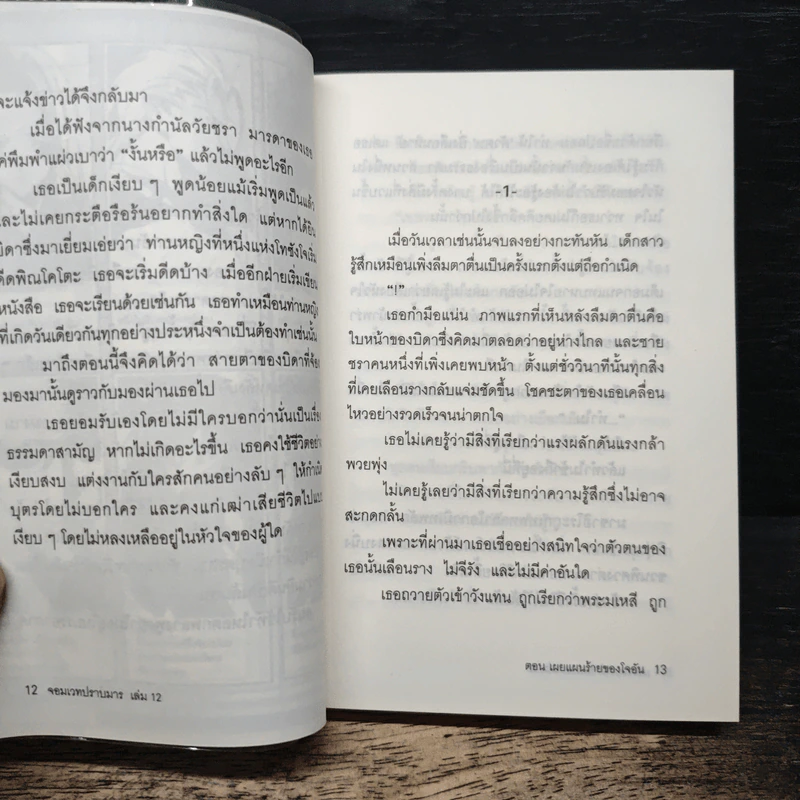 จะแจ้งข่าวได้จึงกลับมา
เมื่อได้ฟังจากนางกำนัลวัยชรา มารดาของเธอ
พึมพำแผ่วเบาว่า “งั้นหรือ” แล้วไม่พูดอะไรอีก
เธอเป็นเด็กเงียบ ๆ พูดน้อยแม้เริ่มพูดเป็นแล้ว
และไม่เคยกระตือรือร้นอยากทำสิ่งใด แต่หากได้ยิน
บิดาซึ่งมาเยี่ยมเอ่ยว่า ท่านหญิงที่หนึ่งแห่งโทซังโจเริ่ม
ดีดพิณโคโตะ เธอจะเริ่มดีดบ้าง เมื่ออีกฝ่ายเริ่มเขียน
หนังสือ เธอจะเรียนด้วยเช่นกัน เธอทำเหมือนท่านหญิง
ที่เกิดวันเดียวกันทุกอย่างประหนึ่งจำเป็นต้องทำเช่นนั้น
มาถึงตอนนี้จึงคิดได้ว่า สายตาของบิดาที่จ้อง
มองมานั้นดูราวกับมองผ่านเธอไป
เธอยอมรับเองโดยไม่มีใครบอกว่านั่นเป็นเรื่อง
ธรรมดาสามัญ หากไม่เกิดอะไรขึ้น เธอคงใช้ชีวิตอย่าง
เงียบสงบ แต่งงานกับใครสักคนอย่างลับ ๆ ให้กำเนิด
บุตรโดยไม่บอกใคร และคงแก่เฒ่าเสียชีวิตไปแบบ
เงียบ ๆ โดยไม่หลงเหลืออยู่ในหัวใจของผู้ใด
12 จอมเวทปราบมาร เล่ม 12
-1-
เมื่อวันเวลาเช่นนั้นจบลงอย่างกะทันหัน เด็กสาว
รู้สึกเหมือนเพิ่งลืมตาตื่นเป็นครั้งแรกตั้งแต่ถือกำเนิด
“!”
เธอกำมือแน่น ภาพแรกที่เห็นหลังลืมตาตื่นคือ
ใบหน้าของบิดาซึ่งคิดมาตลอดว่าอยู่ห่างไกล และชาย
ชราคนหนึ่งที่เพิ่งเคยพบหน้า ตั้งแต่ชั่ววินาทีนั้นทุกสิ่ง
ที่เคยเลือนรางกลับแจ่มชัดขึ้น โชคชะตาของเธอเคลื่อน
ไหวอย่างรวดเร็วจนน่าตกใจ
เธอไม่เคยรู้ว่ามีสิ่งที่เรียกว่าแรงผลักดันแรงกล้า
พวยพุ่ง
ไม่เคยรู้เลยว่ามีสิ่งที่เรียกว่าความรู้สึกซึ่งไม่อาจ
สะกดกลั้น
เพราะที่ผ่านมาเธอเชื่ออย่างสนิทใจว่าตัวตนของ
เธอนั้นเลือนราง ไม่จีรัง และไม่มีค่าอันใด
เธอถวายตัวเข้าวังแทน ถูกเรียกว่าพระมเหสี ถูก
ตอน เผยแผนร้ายของโจอัน 13